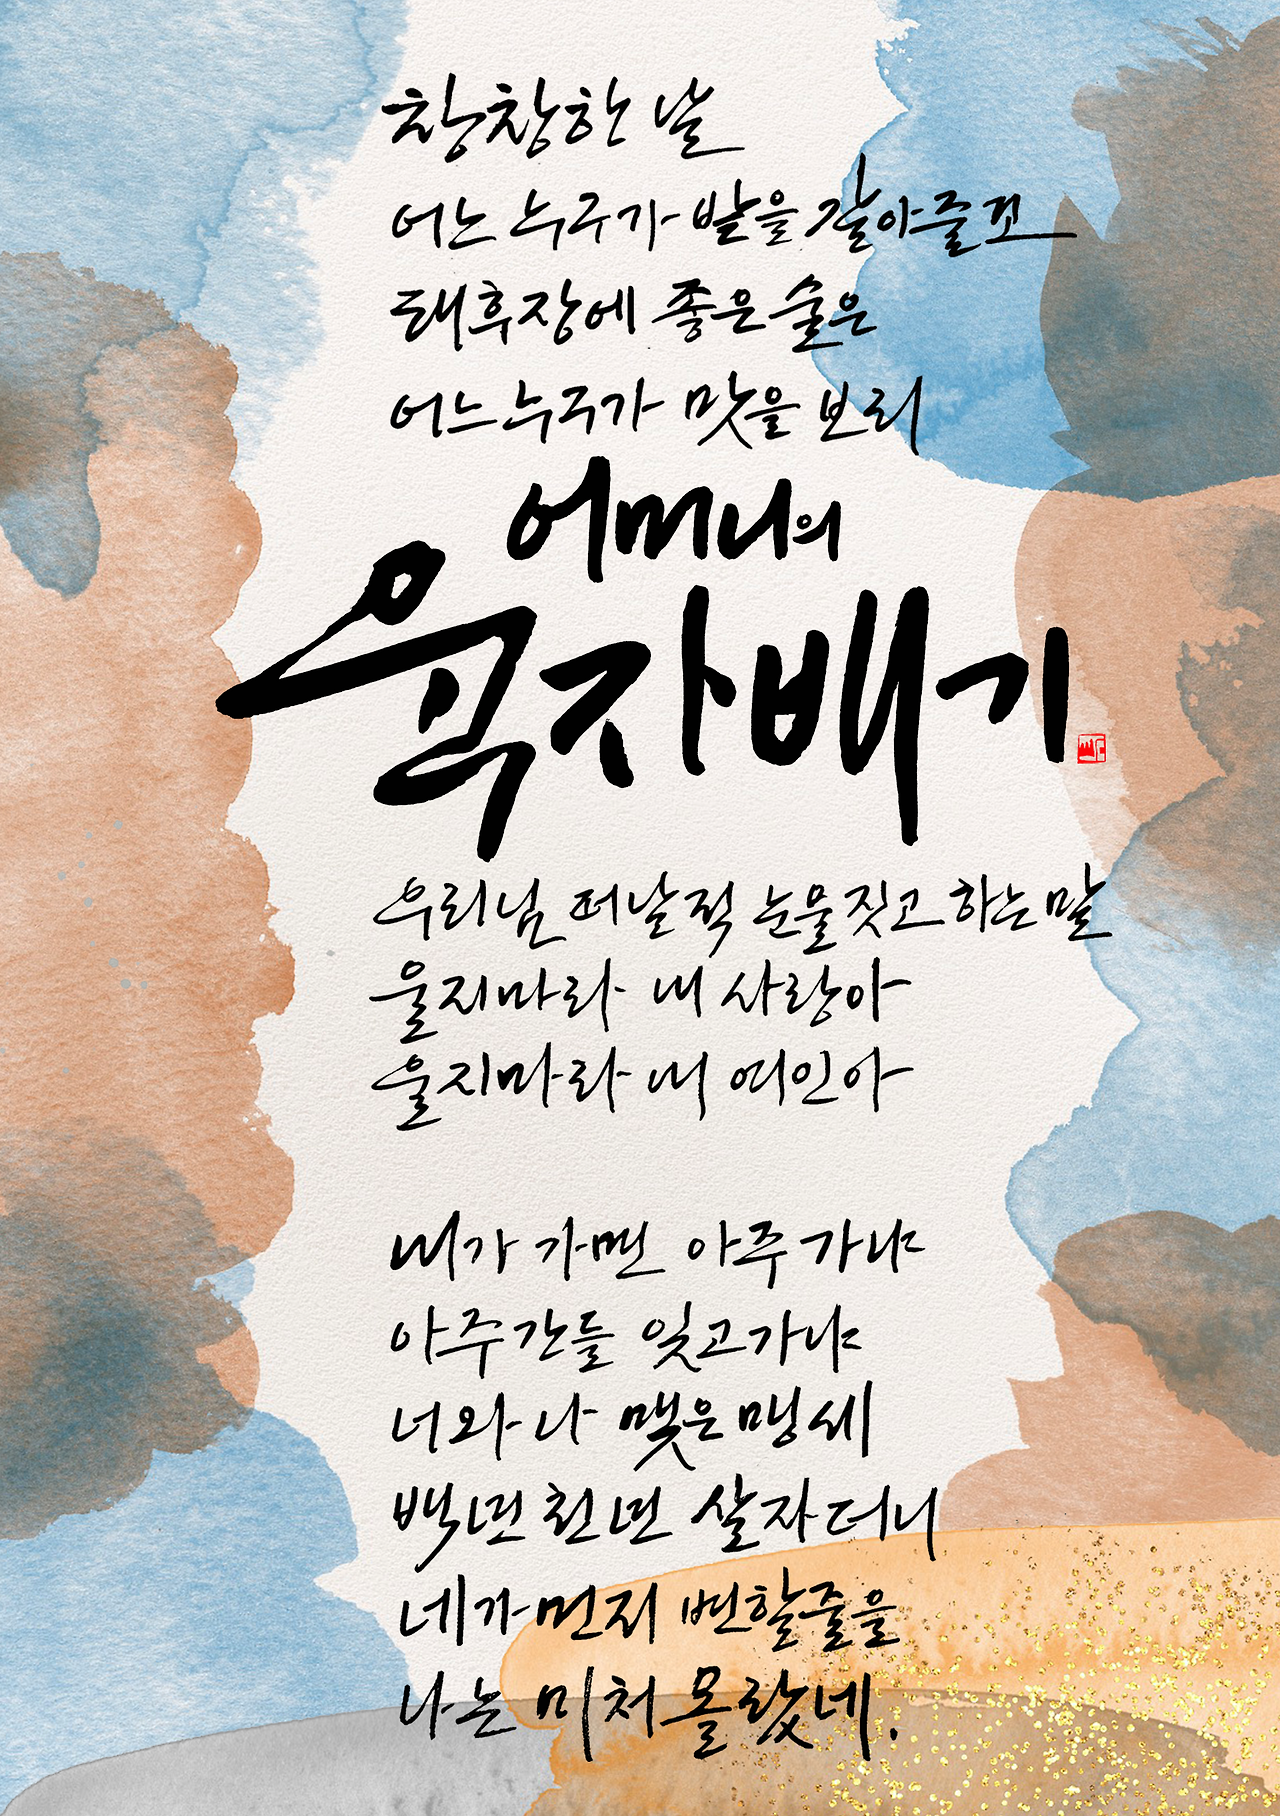 창창한 날
어느 누구가 밭을 갈아줄건
태후장에 좋은 술은
어느 누구가 맛을 보리
어머니의
육자배기
우리님 떠날적 눈물짓고 하는 말
울지마라 내 사랑아
울지마라 내 여인아
내가 가면 아주 가냐
아주간들 잊고가냐
너와 나 맺은 맹세
백년 천년 살자더니
네가 먼저 변할줄을
나는 미처 몰랐네.